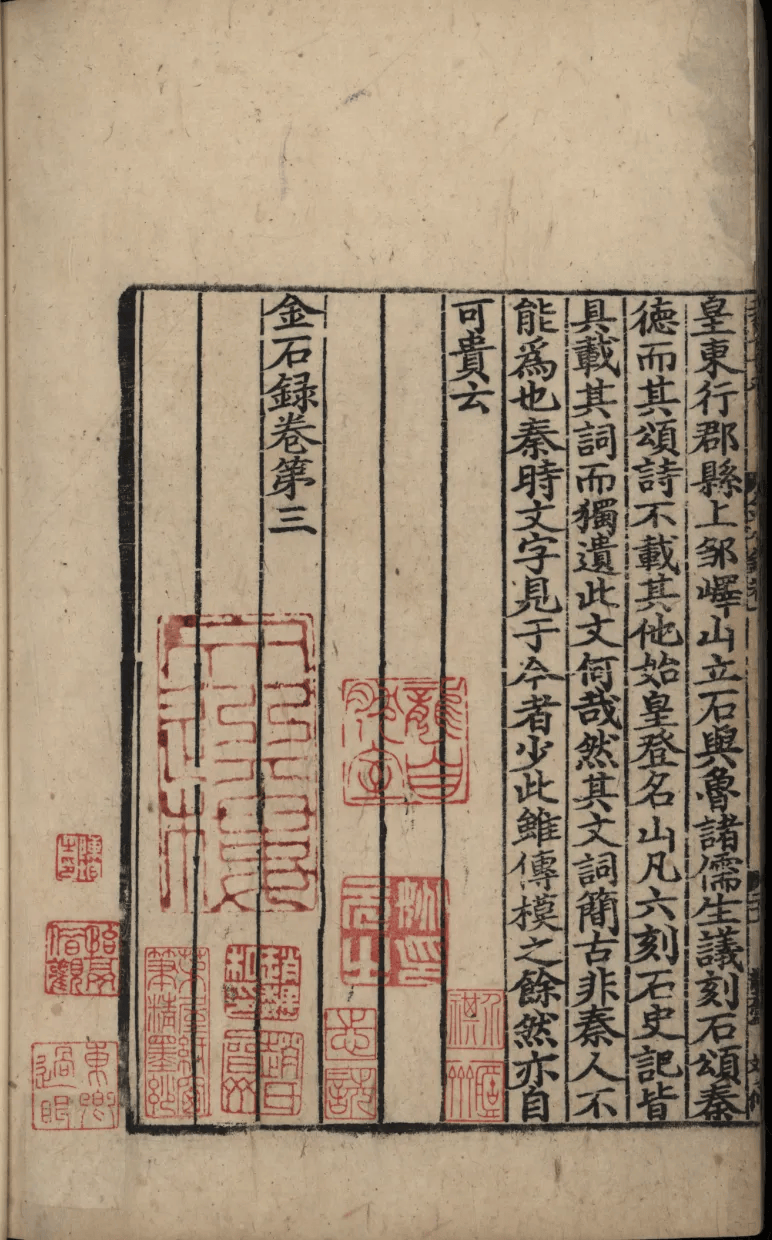 皇東行郡縣上邹嶧山立石與魯諸儒生議刻石頌秦
德而其頌詩不載其他始皇登名山凡六刻石史記皆
具載其詞而獨遺此文何哉然其文詞簡古非秦人不
能爲也秦時文字見于今者少此雖傳模之餘然亦自
可貴云
金石録卷第三
東卿
過眼